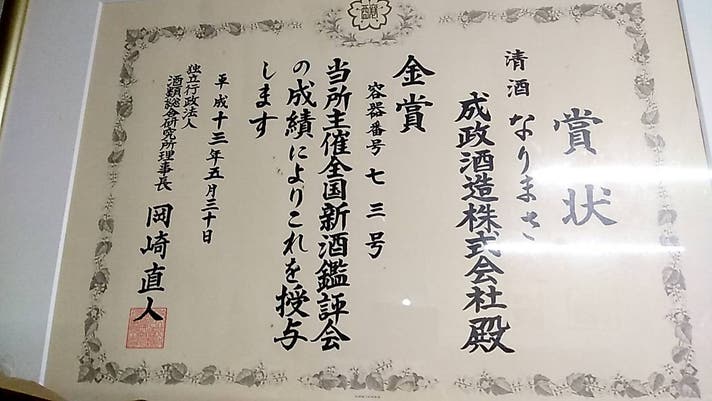 賞状
清酒 なりまさ
成政酒造株式会社殿
金賞
容器番号 七三号
当所主催全国新酒鑑評会
の成績によりこれを授与
します
平成十三年五月三十日
独立行政法人
酒類総合研究所理事長 岡崎直人